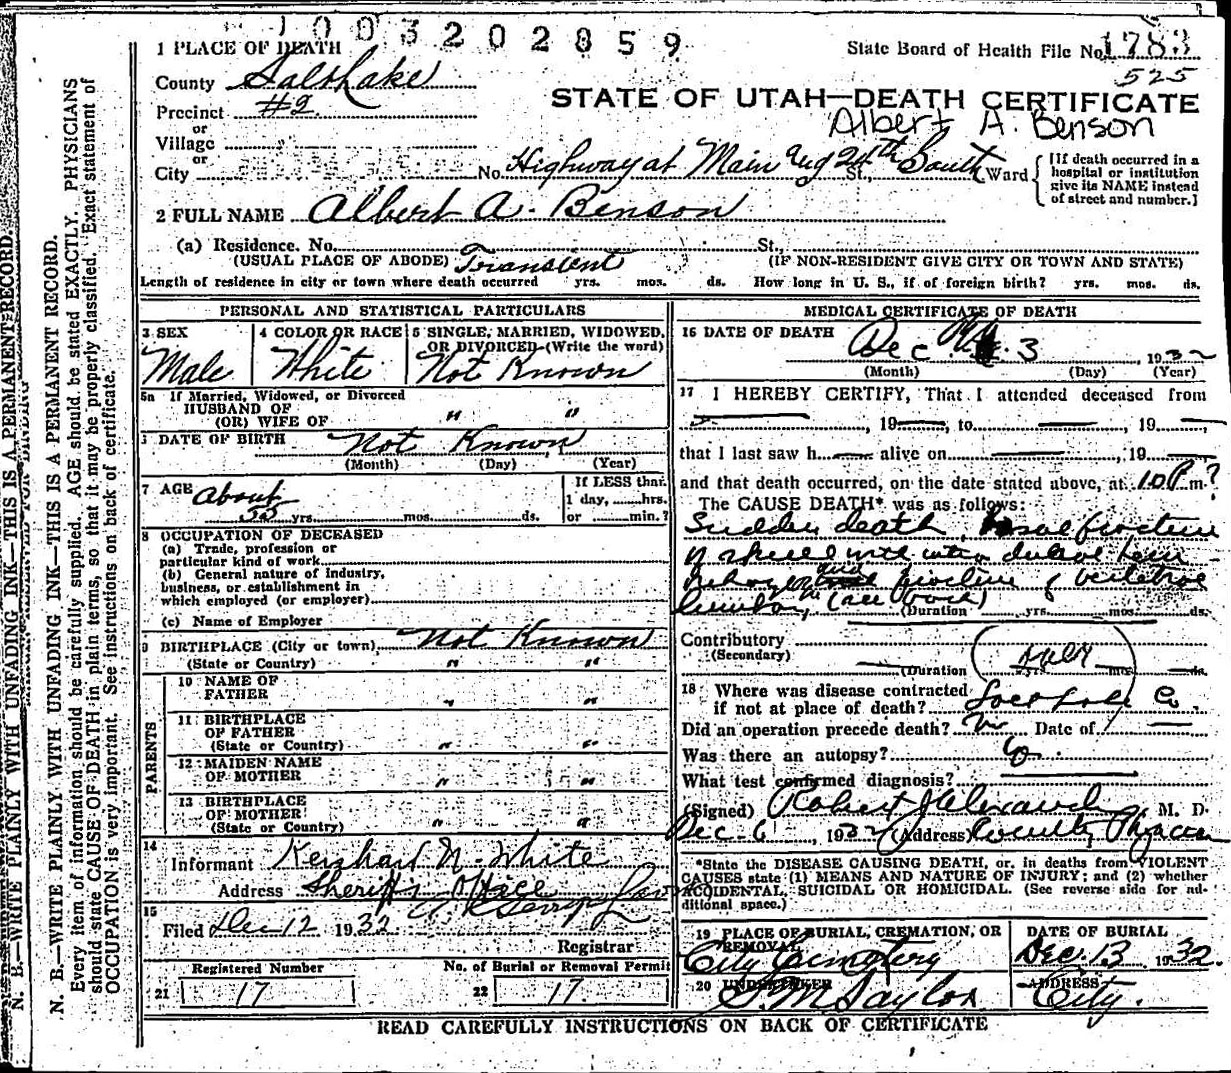 1003202859
1 PLACE OF DEATH
State Board of Health File No. 1783
525
County Salt Lake
Precinct #2
or
Village
or
City
STATE OF UTAH—DEATH CERTIFICATE
Albert A. Benson
No. Highway at Main 24th St., South Ward
[If death occurred in a
hospital or institution
give its NAME instead
of street and number.]
2 FULL NAME Albert A. Benson
(a) Residence. No. St.,
(USUAL PLACE OF ABODE) Transient (IF NON-RESIDENT GIVE CITY OR TOWN AND STATE)
Length of residence in city or town where death occurred yrs. mos. ds. How long in U. S., if of foreign birth? yrs. mos. ds.
PERSONAL AND STATISTICAL PARTICULARS
3 SEX
Male
4 COLOR OR RACE
White
5 SINGLE, MARRIED, WIDOWED,
OR DIVORCED (Write the word)
Not Known
5a If Married, Widowed, or Divorced
HUSBAND OF
(OR) WIFE OF " "
DATE OF BIRTH Not Known
(Month) (Day) (Year)
7 AGE About
55 yrs. mos. ds.
If LESS than
1 day, hrs.
or min.?
8 OCCUPATION OF DECEASED
(a) Trade, profession or
particular kind of work
(b) General nature of industry,
business, or establishment in
which employed (or employer)
(c) Name of Employer
9 BIRTHPLACE (City or town) Not Known
(State or Country) " "
PARENTS
10 NAME OF
FATHER " "
11 BIRTHPLACE
OF FATHER
(State or Country) " "
12 MAIDEN NAME
OF MOTHER " "
13 BIRTHPLACE
OF MOTHER
(State or Country) " "
14
Informant N. White
Address Sheriff's Office
15
Filed Dec 12 1932
Registrar
Registered Number
21 17
No. of Burial or Removal Permit
22 17
MEDICAL CERTIFICATE OF DEATH
16 DATE OF DEATH Dec 3 1932
(Month) (Day) (Year)
17 I HEREBY CERTIFY, That I attended deceased from
, 19 , to , 19 ,
that I last saw h alive on , 19
and that death occurred, on the date stated above, at 10 P m.?
The CAUSE DEATH* was as follows:
Sudden death, basal fracture
of skull with intra dural hem-
and fracture of vertebrae
(Duration) yrs. mos. ds.
Contributory
(Secondary)
(Duration) yrs. mos. ds.
18 Where was disease contracted
if not at place of death? Salt Lake Co.
Did an operation precede death? No Date of
Was there an autopsy?
What test confirmed diagnosis?
(Signed) Robert Alexander, M. D.
Dec. 6, 1932 (Address) County Physician
*State the DISEASE CAUSING DEATH, or, in deaths from VIOLENT
CAUSES state (1) MEANS AND NATURE OF INJURY; and (2) whether
ACCIDENTAL, SUICIDAL OR HOMICIDAL. (See reverse side for ad-
ditional space.)
19 PLACE OF BURIAL, CREMATION, OR
REMOVAL
City Cemetery
DATE OF BURIAL
Dec. 13 1932.
20 UNDERTAKER
S. M. Taylor
ADDRESS
City.
READ CAREFULLY INSTRUCTIONS ON BACK OF CERTIFICATE
N. B.—WRITE PLAINLY WITH UNFADING INK—THIS IS A PERMANENT RECORD.
N. B.—WRITE PLAINLY WITH UNFADING INK—THIS IS A PERMANENT RECORD.
Every item of information should be carefully supplied. AGE should be stated EXACTLY. PHYSICIANS
should state CAUSE OF DEATH in plain terms, so that it may be properly classified. Exact statement of
OCCUPATION is very important. See instructions on back of certificate.